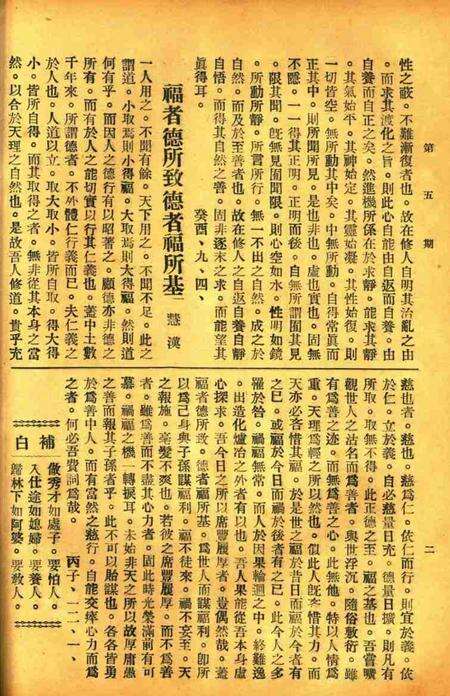 第五期
二
性之蔽。不難漸復者也。故在修人自明其治亂之由
。而求其渡化之旨。則此心自能由自返而自養。由
自養而自正之矣。然進機所係在於求靜。能求其靜
。其氣始平。其神始定。其靈始凝。其性始復。則
一切皆空。無所動其中矣。中無所動。自得常眞而
正其中。則所聞所見。是也非也。虛也實也。固無
不隱。一一得其正明。正明而後。自無所謂囿其見
。限其聞。旣無見囿聞限。則心空如水。性明如鏡
。所動所靜。所言所行。無一不出之自然。成之於
自然。而及於至善者也。故在修人之自返自養自靜
自悟。而得其自然之善。固非逐末之求。而能望其
眞得耳。 癸酉、九、四、
福者德所致德者福所基 慧漢
一人用之。不聞有餘。天下用之。不聞不足。此之
謂道。小取焉則小得福。大取焉則大得福。然則道
何有乎。而因人之德行有以昭著之。顧德亦非德之
所有。而有於人之能切實以行其仁義也。蓋中土數
千年來。所謂德者。不外體仁行義而已。夫仁義之
於人也。人道以立。取大取小。皆所自取。得大得
小。皆所自得。而其取得之者。無非從其本身之當
然。以合於天理之自然也。是故吾人修道。貴乎充
慈也者。慈也。慈爲仁。依仁而行。則宜於義。依
於仁。立於義。自必慈量日充。德量日擴。則凡有
所取。取無不得。此正德之至。福之基也。吾嘗曠
觀世人之沽名而爲善者。與世浮沉。隨俗敷衍。雖
有爲善之迹。而無爲善之心。此無他。特以人情爲
重。天理爲輕之所以然也。但此人旣吝惜其力。而
天亦必吝惜其福。於是世之福於昔日而禍於今者有
之已。或福於今日而禍於後者有之已。此今人之多
罹於咎。禍福無常。而人於因果輪迴之中。終難逸
。出造化爐冶之外者有以也。吾人果能從吾本身虛
心探求。吾今日之所以席豐履厚者。豈偶然哉。蓋
福者德所致。德者福所基。爲世人而謀福利。卽所
以爲己身與子孫謀福利。福不徒來。禍不妄至。天
之報施。毫髮不爽也。若彼之席豐履厚。而不爲善
者。雖爲善而不盡其心力者。固此時光榮滿前有可
慕。禍福之機一轉捩耳。未始非天之所以故厚庸愚
之善而報其子孫者乎。此不可以貽謀也。各各皆勇
於爲善中人。而有當然之慈行。自能交瘁心力而爲
之者。何必吾費詞爲哉。 丙子、一二、一、
補白
做秀才如處子。要怕人。
入仕途如媳婦。要養人。
歸林下如阿婆。要敎人。